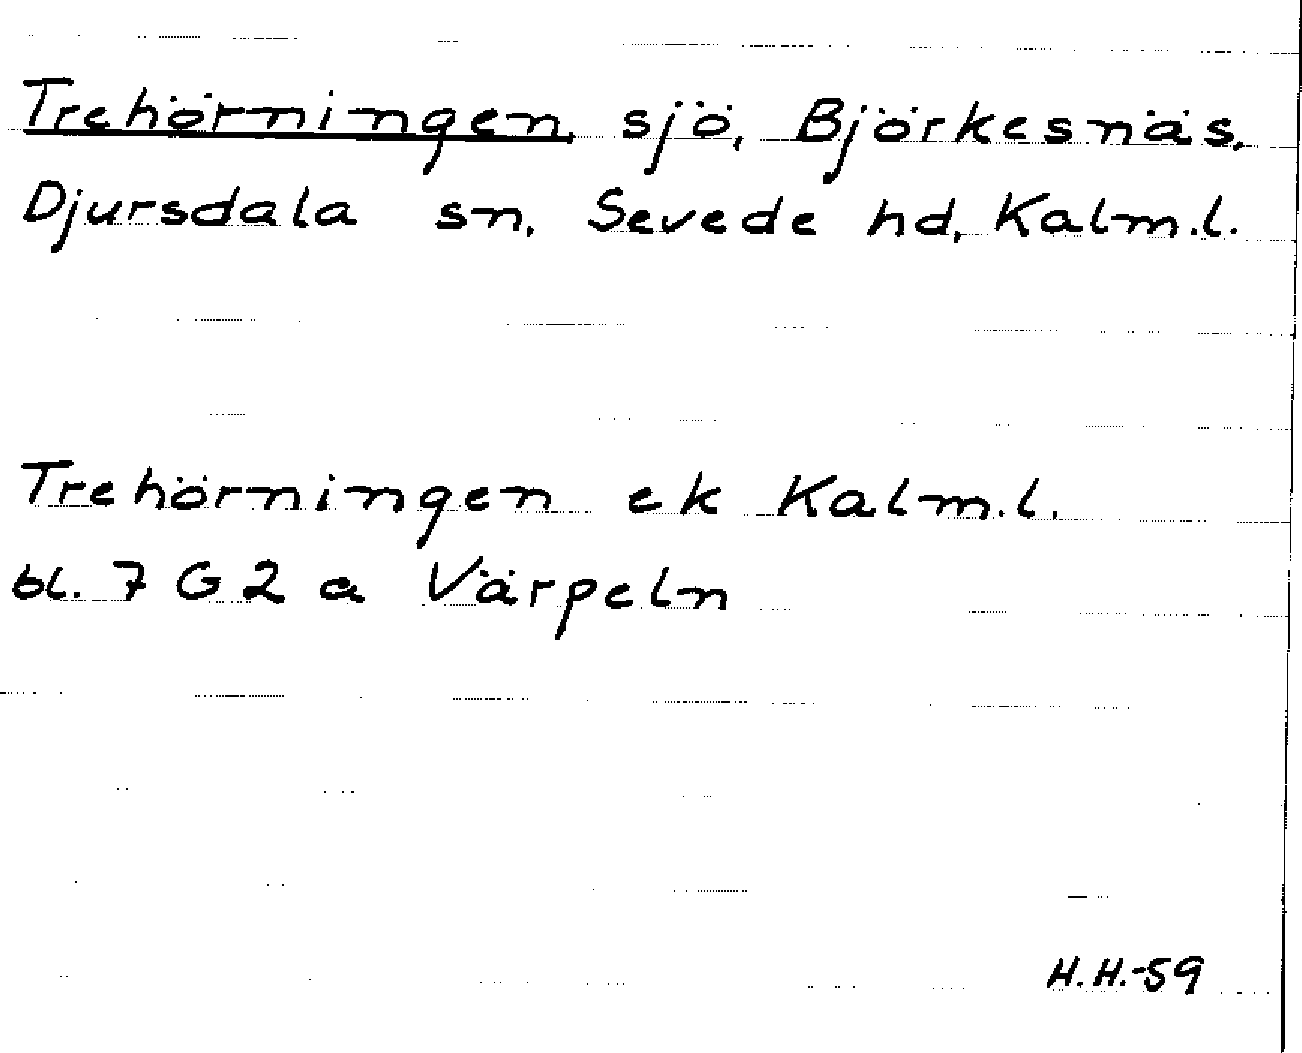 Trehörningen, sjö, Björkesnäs,
Djursdala sn, Sevede hd, Kalm.l.
Trehörningen ek Kalm.l.
bl. 7 G 2 a Värpeln
H.H.-59